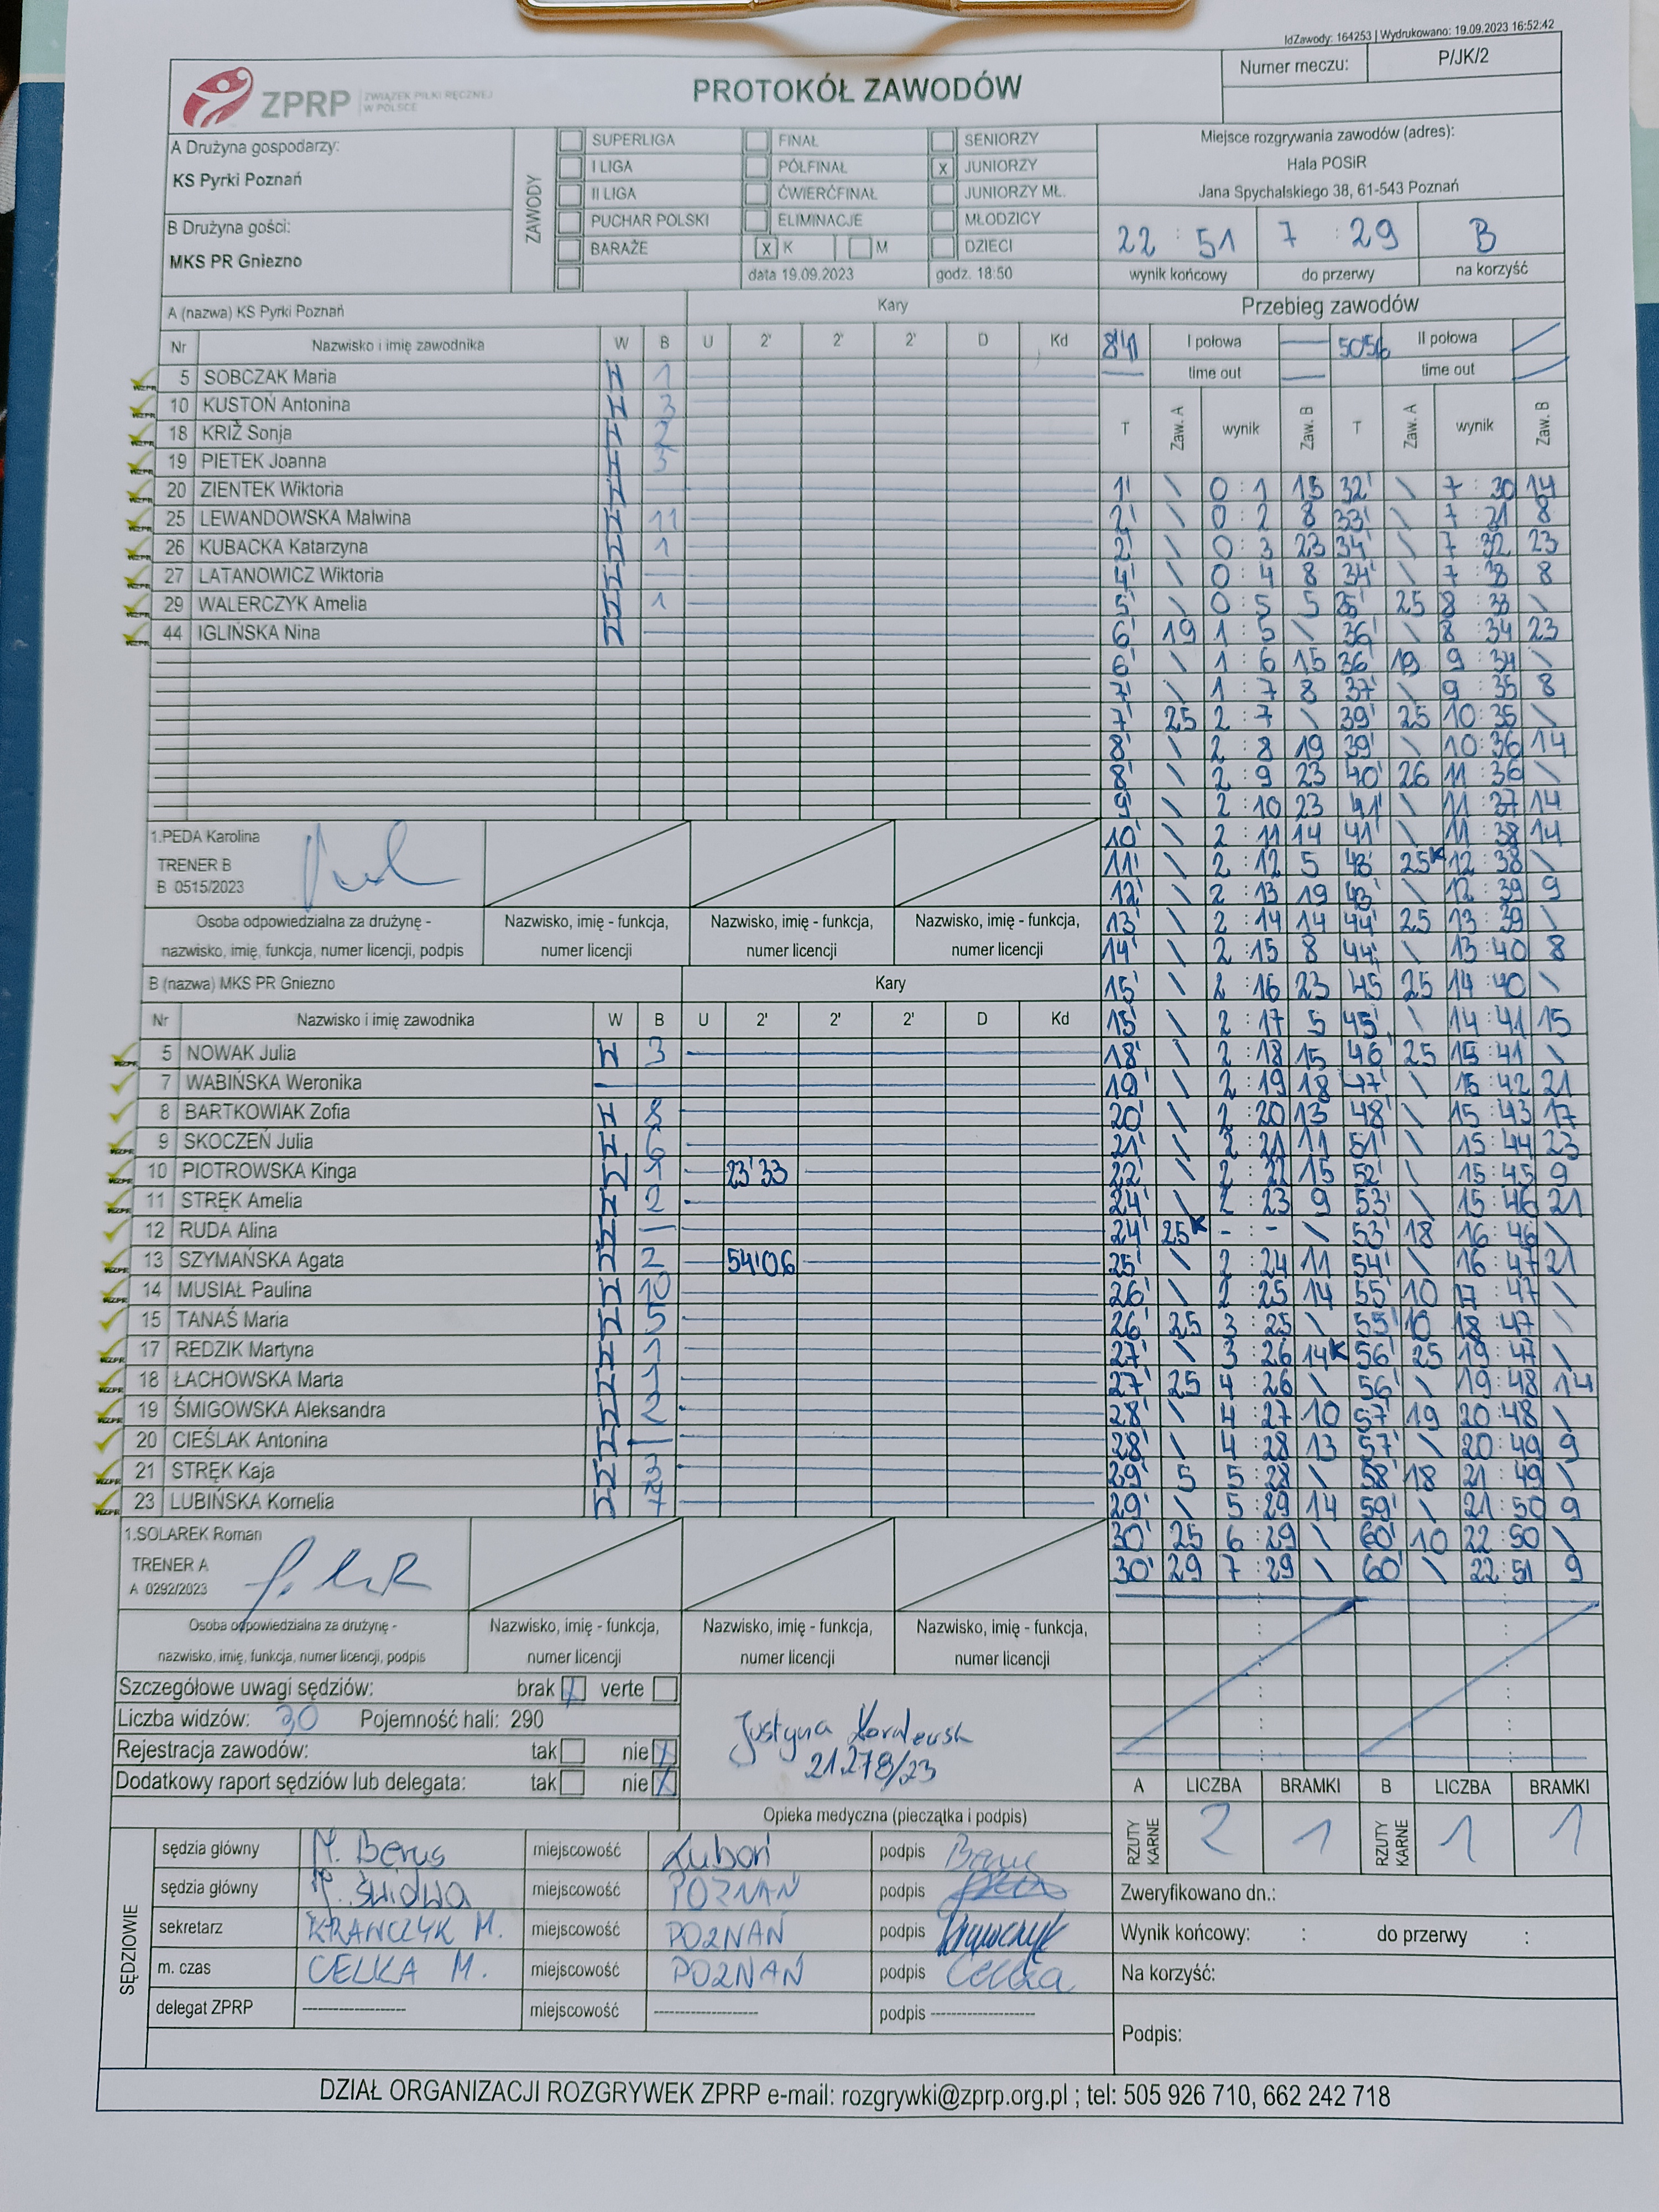 IdZawody: 164253 | Wydrukowano: 19.09.2023 16:52:42
ZPRP ZWIĄZEK PIŁKI RĘCZNEJ W POLSCE
PROTOKÓŁ ZAWODÓW
Numer meczu: P/JK/2
A Drużyna gospodarzy:
KS Pyrki Poznań
B Drużyna gości:
MKS PR Gniezno
ZAWODY
SUPERLIGA FINAŁ SENIORZY
I LIGA PÓŁFINAŁ x JUNIORZY
II LIGA ĆWIERĆFINAŁ JUNIORZY MŁ.
PUCHAR POLSKI ELIMINACJE MŁODZICY
BARAŻE x K M DZIECI
data 19.09.2023 godz. 18:50
Miejsce rozgrywania zawodów (adres):
Hala POSiR
Jana Spychalskiego 38, 61-543 Poznań
22 : 51 7 : 29 B
wynik końcowy do przerwy na korzyść
A (nazwa) KS Pyrki Poznań Kary
Nr Nazwisko i imię zawodnika W B U 2' 2' 2' D Kd
5 SOBCZAK Maria 1
10 KUSTOŃ Antonina 3
18 KRIŽ Sonja 2
19 PIETEK Joanna 3
20 ZIENTEK Wiktoria
25 LEWANDOWSKA Malwina 11
26 KUBACKA Katarzyna 1
27 LATANOWICZ Wiktoria
29 WALERCZYK Amelia 1
44 IGLIŃSKA Nina
1.PEDA Karolina
TRENER B
B 0515/2023
Osoba odpowiedzialna za drużynę -
nazwisko, imię, funkcja, numer licencji, podpis
Nazwisko, imię - funkcja,
numer licencji
Nazwisko, imię - funkcja,
numer licencji
Nazwisko, imię - funkcja,
numer licencji
B (nazwa) MKS PR Gniezno Kary
Nr Nazwisko i imię zawodnika W B U 2' 2' 2' D Kd
5 NOWAK Julia 3
7 WABIŃSKA Weronika
8 BARTKOWIAK Zofia 8
9 SKOCZEŃ Julia 6
10 PIOTROWSKA Kinga 1 23'33
11 STRĘK Amelia 2
12 RUDA Alina
13 SZYMAŃSKA Agata 2 54'06
14 MUSIAŁ Paulina 10
15 TANAŚ Maria 5
17 REDZIK Martyna 1
18 ŁACHOWSKA Marta 1
19 ŚMIGOWSKA Aleksandra 2
20 CIEŚLAK Antonina
21 STRĘK Kaja 3
23 LUBIŃSKA Kornelia 7
1.SOLAREK Roman
TRENER A
A 0292/2023
Osoba odpowiedzialna za drużynę -
nazwisko, imię, funkcja, numer licencji, podpis
Nazwisko, imię - funkcja,
numer licencji
Nazwisko, imię - funkcja,
numer licencji
Nazwisko, imię - funkcja,
numer licencji
Przebieg zawodów
I połowa II połowa
time out time out
T Zaw. A wynik Zaw. B T Zaw. A wynik Zaw. B
1' \ 0 : 1 15 32' \ 7 : 30 14
2' \ 0 : 2 8 33' \ 7 : 31 8
2' \ 0 : 3 23 34' \ 7 : 32 23
4' \ 0 : 4 8 34' \ 7 : 33 8
5' \ 0 : 5 5 35' 25 8 : 33 \
6' 19 1 : 5 \ 36' \ 8 : 34 23
6' \ 1 : 6 15 36' 19 9 : 34 \
7' \ 1 : 7 8 37' \ 9 : 35 8
7' 25 2 : 7 \ 39' 25 10 : 35 \
8' \ 2 : 8 19 39' \ 10 : 36 14
8' \ 2 : 9 23 40' 26 11 : 36 \
9' \ 2 : 10 23 41' \ 11 : 37 14
10' \ 2 : 11 14 41' \ 11 : 38 14
11' \ 2 : 12 5 43' 25K 12 : 38 \
12' \ 2 : 13 19 43' \ 12 : 39 9
13' \ 2 : 14 14 44' 25 13 : 39 \
14' \ 2 : 15 8 44' \ 13 : 40 8
15' \ 2 : 16 23 45 25 14 : 40 \
15' \ 2 : 17 5 45' \ 14 : 41 15
18' \ 2 : 18 15 46' 25 15 : 41 \
19' \ 2 : 19 18 47' \ 15 : 42 21
20' \ 2 : 20 13 48' \ 15 : 43 17
21' \ 2 : 21 11 51' \ 15 : 44 23
22' \ 2 : 22 15 52' \ 15 : 45 9
24' \ 2 : 23 9 53' \ 15 : 46 21
24' 25K - : - \ 53' 18 16 : 46 \
25' \ 2 : 24 11 54' \ 16 : 47 21
26' \ 2 : 25 14 55' 10 17 : 47 \
26' 25 3 : 25 \ 55' 10 18 : 47 \
27' \ 3 : 26 14K 56' 25 19 : 47 \
27' 25 4 : 26 \ 56' \ 19 : 48 14
28' \ 4 : 27 10 57' 19 20 : 48 \
28' \ 4 : 28 13 57' \ 20 : 49 9
29' 5 5 : 28 \ 58' 18 21 : 49 \
29' \ 5 : 29 14 59' \ 21 : 50 9
30' 25 6 : 29 \ 60' 10 22 : 50 \
30' 29 7 : 29 \ 60' \ 22 : 51 9
Szczegółowe uwagi sędziów: brak verte
Liczba widzów: 30 Pojemność hali: 290
Rejestracja zawodów: tak nie x
Dodatkowy raport sędziów lub delegata: tak nie x
Justyna
21.278/23
Opieka medyczna (pieczątka i podpis)
A LICZBA BRAMKI B LICZBA BRAMKI
RZUTY KARNE 2 1 RZUTY KARNE 1 1
SĘDZIOWIE
sędzia główny M. Berus miejscowość Luboń podpis
sędzia główny miejscowość POZNAŃ podpis
sekretarz M. miejscowość POZNAŃ podpis
m. czas CELKA M. miejscowość POZNAŃ podpis Celka
delegat ZPRP ---- miejscowość ---- podpis ----
Zweryfikowano dn.:
Wynik końcowy: : do przerwy :
Na korzyść:
Podpis:
DZIAŁ ORGANIZACJI ROZGRYWEK ZPRP e-mail: rozgrywki@zprp.org.pl ; tel: 505 926 710, 662 242 718